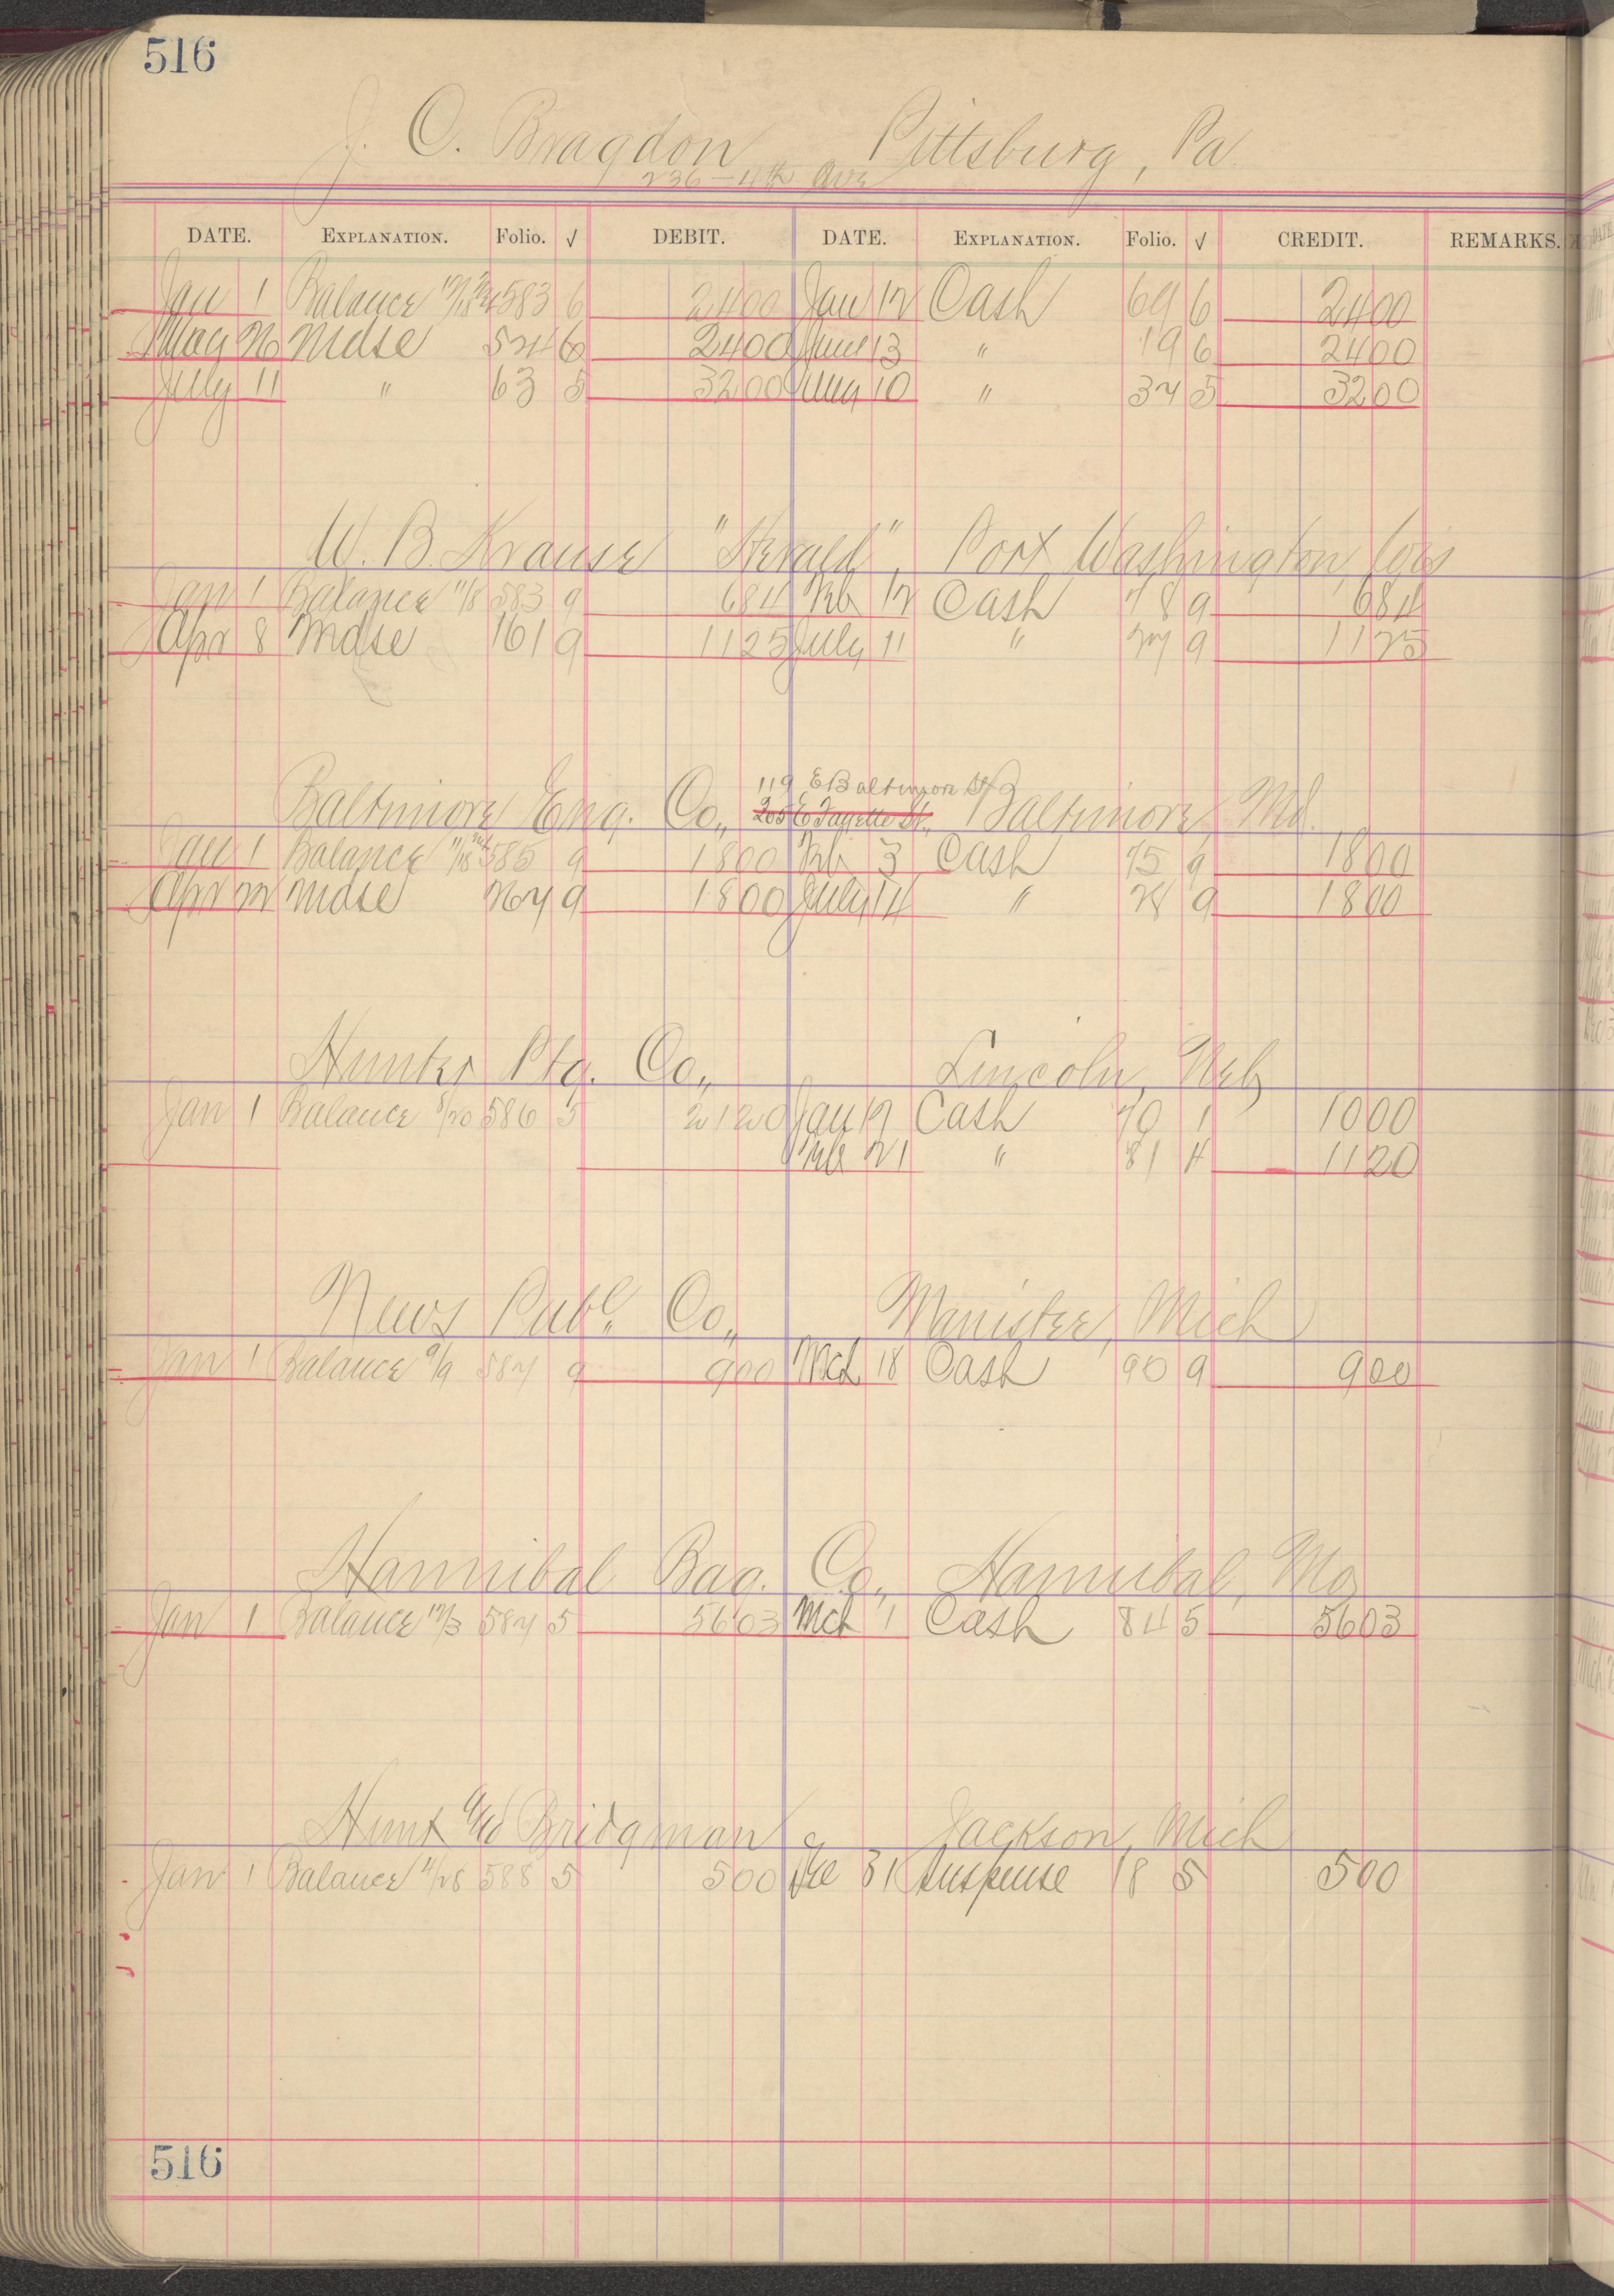 516
J. C. Bragdon Pittsburg, Pa.
236 - 4th Ave
DATE. EXPLANATION. Folio. √ DEBIT. DATE. EXPLANATION. Folio. √ CREDIT. REMARKS.
Jan 1 Balance 583 6 2400 Jan 12 Cash 69 6 2400
May 26 Mdse 524 6 2400 June 13 " 19 6 2400
July 11 " 63 5 3200 Aug 10 " 34 5 3200
W. B. Krause "Herald", Port Washington, Wis
Jan 1 Balance 11/8 583 9 684 Feb 12 Cash 78 9 684
Apr 8 Mdse 161 9 1125 July 11 " 27 9 1125
119 E Baltimore St
Baltimore Eng. Co., 205 E Fayette St., Baltimore, Md.
Jan 1 Balance 585 9 1800 Feb 3 Cash 75 9 1800
Apr 22 Mdse 264 9 1800 July 14 " 28 9 1800
Hunter Ptg. Co., Lincoln, Neb
Jan 1 Balance 8/20 586 5 2120 Jan 12 Cash 70 1 1000
Feb 21 " 81 4 1120
News Publ. Co., Manistee, Mich
Jan 1 Balance 9/9 587 9 900 Mch 18 Cash 90 9 900
Hannibal Bag. Co., Hannibal, Mo
Jan 1 Balance 12/3 587 5 5603 Mch 1 Cash 84 5 5603
Hunt & Bridgman Jackson, Mich
Jan 1 Balance 4/28 588 5 500 Dec 31 Suspense 18 5 500
516